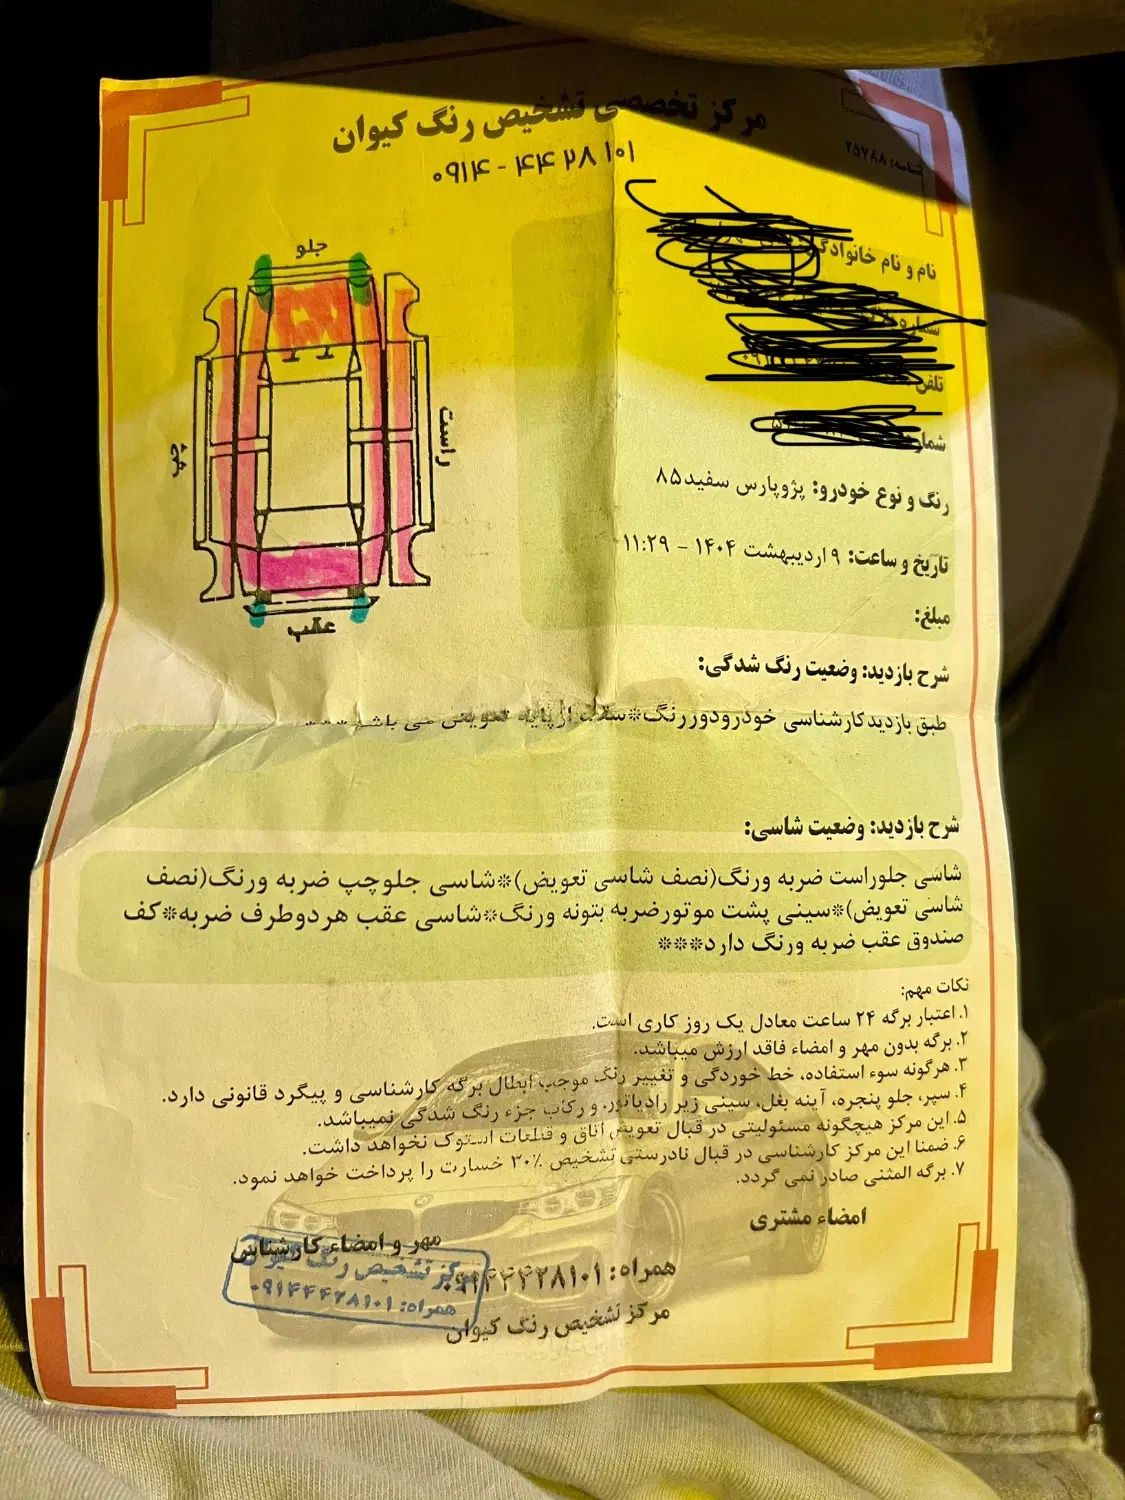 مرکز تخصصی تشخیص رنگ کیوان
۰۹۱۴ - ۴۴ ۲۸ ۱۰۱
۲۵۷۸۸
جلو
راست
چپ
عقب
نام و نام خانوادگی
تلفن
رنگ و نوع خودرو: پژوپارس سفید۸۵
تاریخ و ساعت: ۹ اردیبهشت ۱۴۰۴ - ۱۱:۲۹
مبلغ:
شرح بازدید: وضعیت رنگ شدگی:
طبق بازدیدکارشناسی خودرودوررنگ*ستون ازپایه تعویض می باشد***
شرح بازدید: وضعیت شاسی:
شاسی جلوراست ضربه ورنگ(نصف شاسی تعویض)*شاسی جلوچپ ضربه ورنگ(نصف
شاسی تعویض)*سینی پشت موتورضربه بتونه ورنگ*شاسی عقب هردوطرف ضربه*کف
صندوق عقب ضربه ورنگ دارد***
نکات مهم:
۱. اعتبار برگه ۲۴ ساعت معادل یک روز کاری است.
۲. برگه بدون مهر و امضاء فاقد ارزش میباشد.
۳. هرگونه سوء استفاده، خط خوردگی و تغییر رنگ موجب ابطال برگه کارشناسی و پیگرد قانونی دارد.
۴. سپر، جلو پنجره، آینه بغل، سینی زیر رادیاتور و رکاب جزء رنگ شدگی نمیباشد.
۵. این مرکز هیچگونه مسئولیتی در قبال تعویض اتاق و قطعات استوک نخواهد داشت.
۶. ضمنا این مرکز کارشناسی در قبال نادرستی تشخیص ۳۰٪ خسارت را پرداخت خواهد نمود.
۷. برگه المثنی صادر نمی گردد.
امضاء مشتری
مهر و امضاء کارشناسی
مرکز تشخیص رنگ کیوان
همراه: ۰۹۱۴۴۴۲۸۱۰۱
همراه: ۰۹۱۴۴۴۲۸۱۰۱
مرکز تشخیص رنگ کیوان